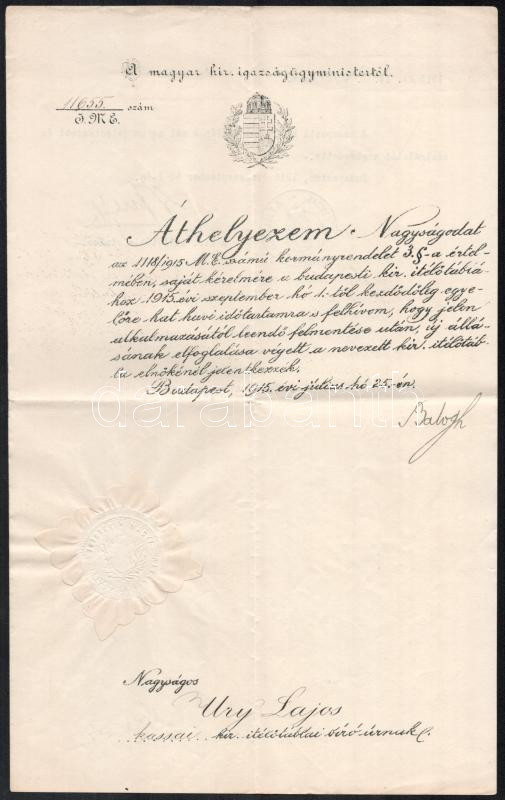 A magyar kir. igazságügyminisztertől.
11655. szám
I. M. E.
Áthelyezem Nagyságodat
az 1118/1915 M. E. számú kormányrendelet 3. §-a értel-
mében, saját kérelmére a budapesti kir. itélőtáblá-
hoz 1915. évi szeptember hó 1.-től kezdődőleg egye-
lőre hat havi időtartamra s felhívom, hogy jelen
alkalmazásától leendő felmentése után, új állá-
sának elfoglalása végett a nevezett kir. itélőtáb-
la elnökénél jelentkezzék.
Budapest, 1915. évi július hó 25.-én.
Balogh
darabanth
Nagyságos
Ury Lajos
kassai kir. itélőtáblai biró úrnak.